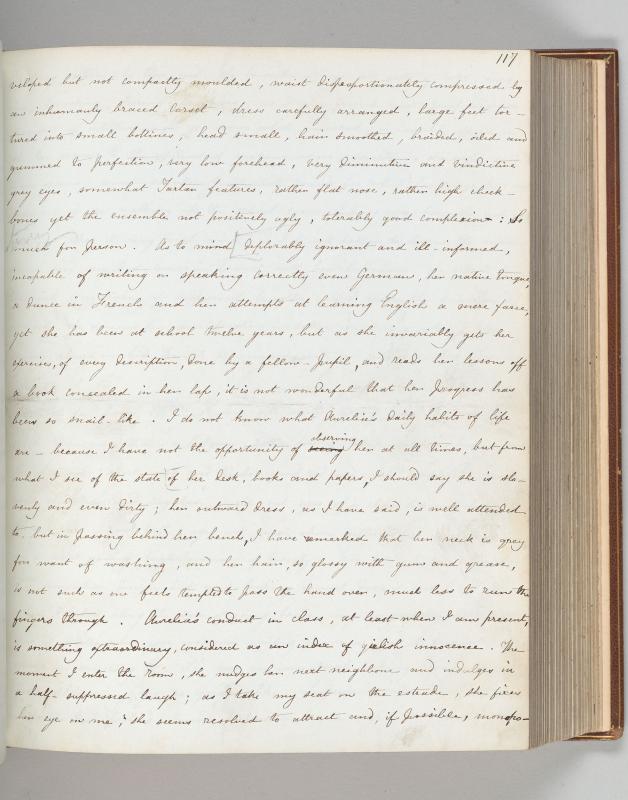 117
veloped but not compactly moulded, waist disproportionately compressed by
an inhumanly braced corset, dress carefully arranged, large feet tor-
tured into small bottines, head small, hair smoothed, braided, oiled and
gummed to perfection, very low forehead, very diminutive and vindictive
grey eyes, somewhat Tartar features, rather flat nose, rather high cheek-
bones yet the ensemble not positively ugly, tolerably good complexion: So
much for person. As to mind [deplorably ignorant and ill-informed,
incapable of writing or speaking correctly even German, her native tongue,
a dunce in French and her attempts at learning English a mere farce,
yet she has been at school twelve years, but as she invariably gets her
exercises, of every description, done by a fellow-pupil, and reads her lessons off
a book concealed in her lap, it is not wonderful that her progress has
been so snail-like. I do not know what Aurelia's daily habits of life
are - because I have not the opportunity of seeing observing her at all times, but from
what I see of the state [of her desk, books and papers, I should say she is slo-
venly and even dirty; her outward dress, as I have said, is well attended
to, but in passing behind her bench, I have remarked that her neck is grey
for want of washing, and her hair, so glossy with gum and grease,
is not such as one feels tempted to pass the hand over, much less to run the
fingers through. Aurelia's conduct in class, at least when I am present,
is something extraordinary, considered as an index of girlish innocence. The
moment I enter the room, she nudges her next neighbour and indulges in
a half-suppressed laugh; as I take my seat on the estrade, she fixes
her eye on me; she seems resolved to attract and, if possible, monopo-